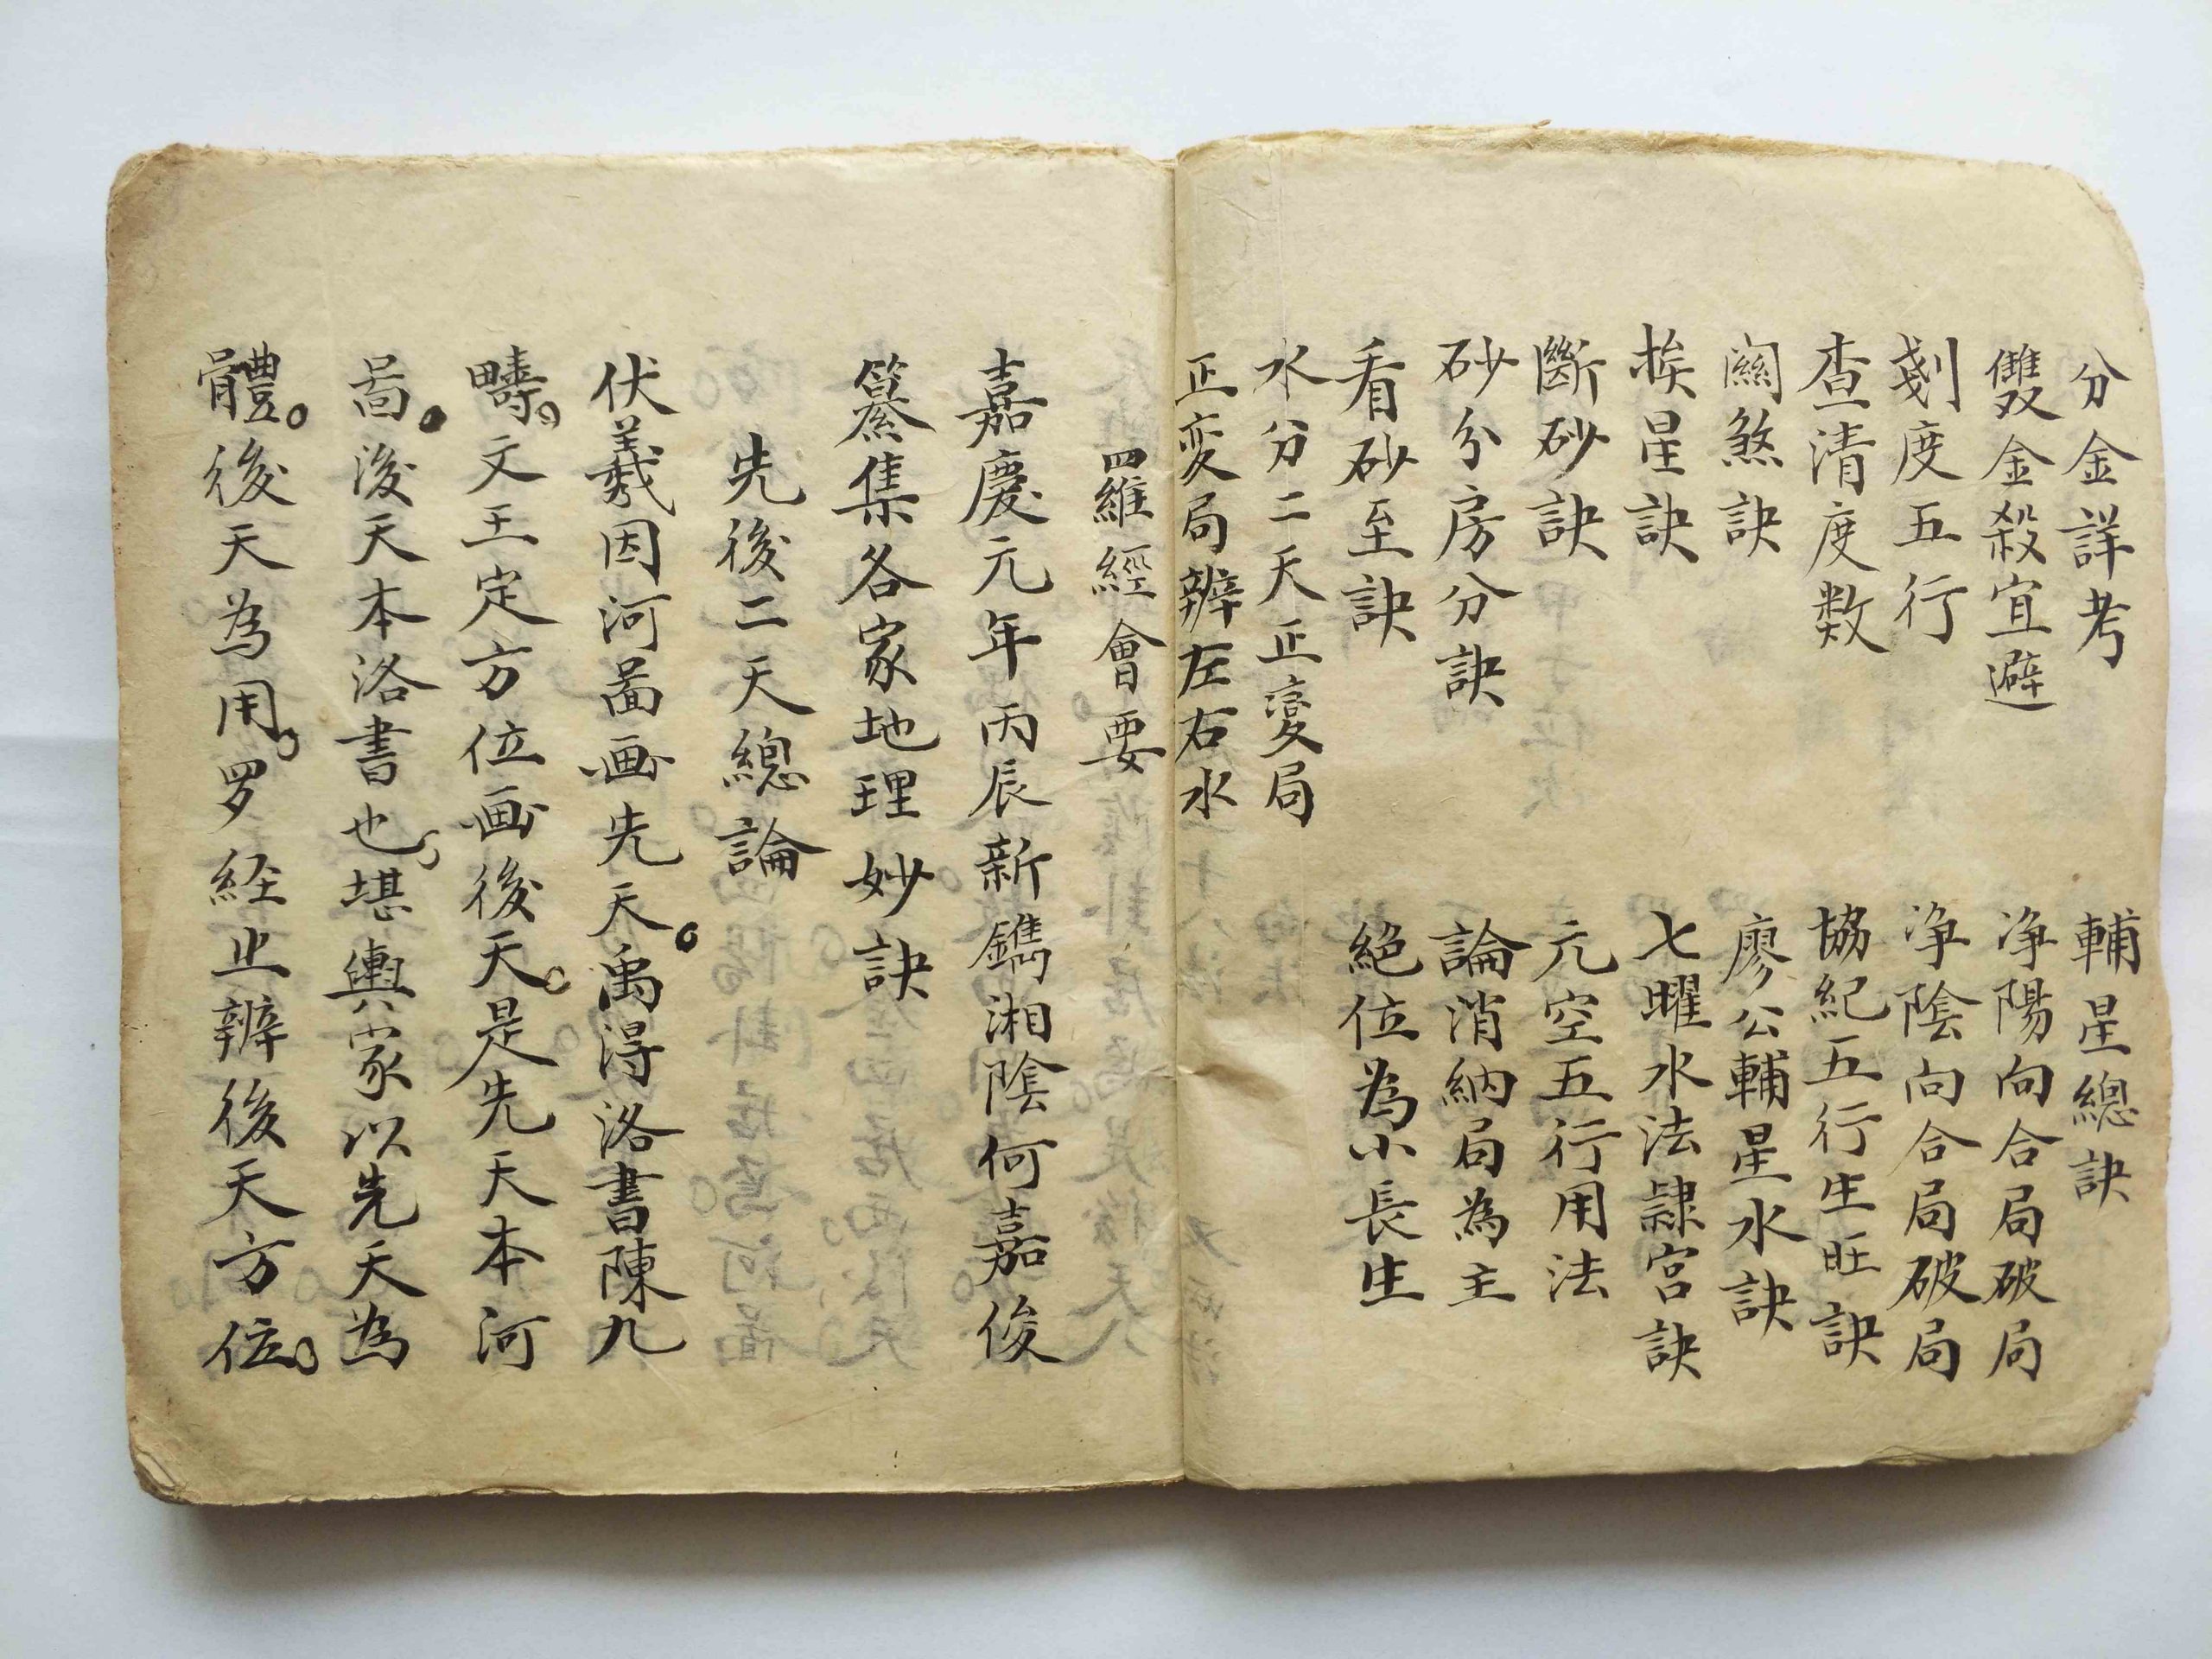 分金詳考
雙金殺宜避
刻度五行
查清度数
關煞訣
挨星訣
斷砂訣
砂分房分訣
看砂至訣
水分二天正變局
正変局辨左右水
輔星總訣
净陽向合局破局
净陰向合局破局
協紀五行生旺訣
廖公輔星水訣
七曜水法隷宮訣
元空五行用法
論消納局為主
絕位為小長生
羅經會要
嘉慶元年丙辰新鐫湘陰何嘉俊
纂集各家地理妙訣
先後二天總論
伏羲因河啚画先天。禹得洛書陳九
疇。文王定方位画後天。是先天本河
啚。後天本洛書也。堪輿家以先天為
體。後天為用。罗経止辨後天方位。